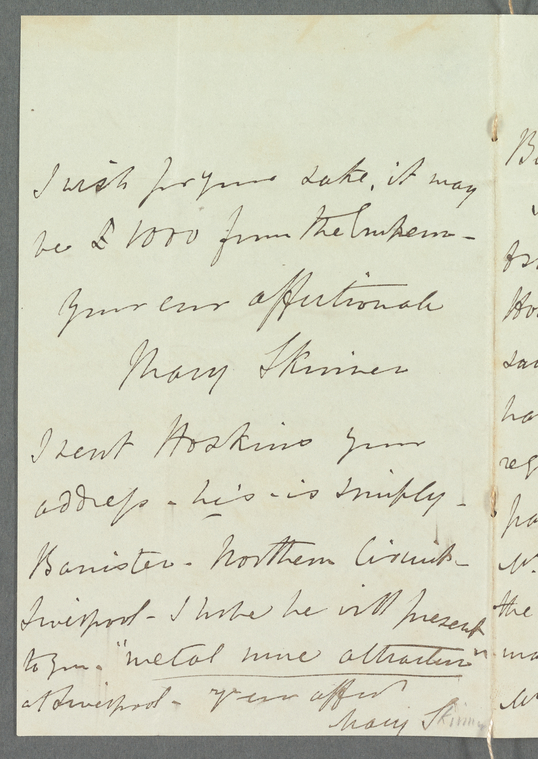 I wish for your sake, it may
be £1000 from the
your ever affectionate
Mary Skinner
I sent Hoskins your
address - his - is simply -
Banister - Northern Circuit -
Liverpool - I hope he will present
to you - "metal more attractive"
at Liverpool - your affect
Mary Skinner
Ho
reg
the